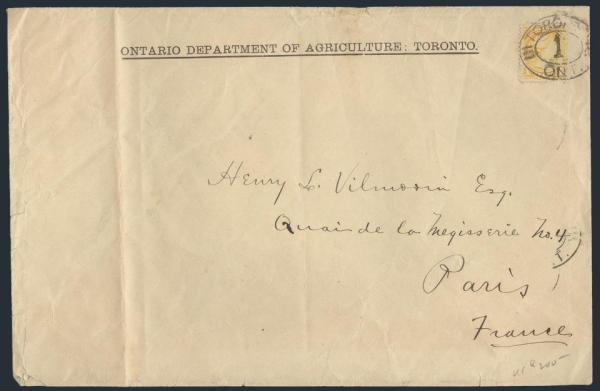 ONTARIO DEPARTMENT OF AGRICULTURE: TORONTO.
1
ONT.
Henry L. Vilmorin Esq.
Quai de la Megisserie No. 4
Paris
France